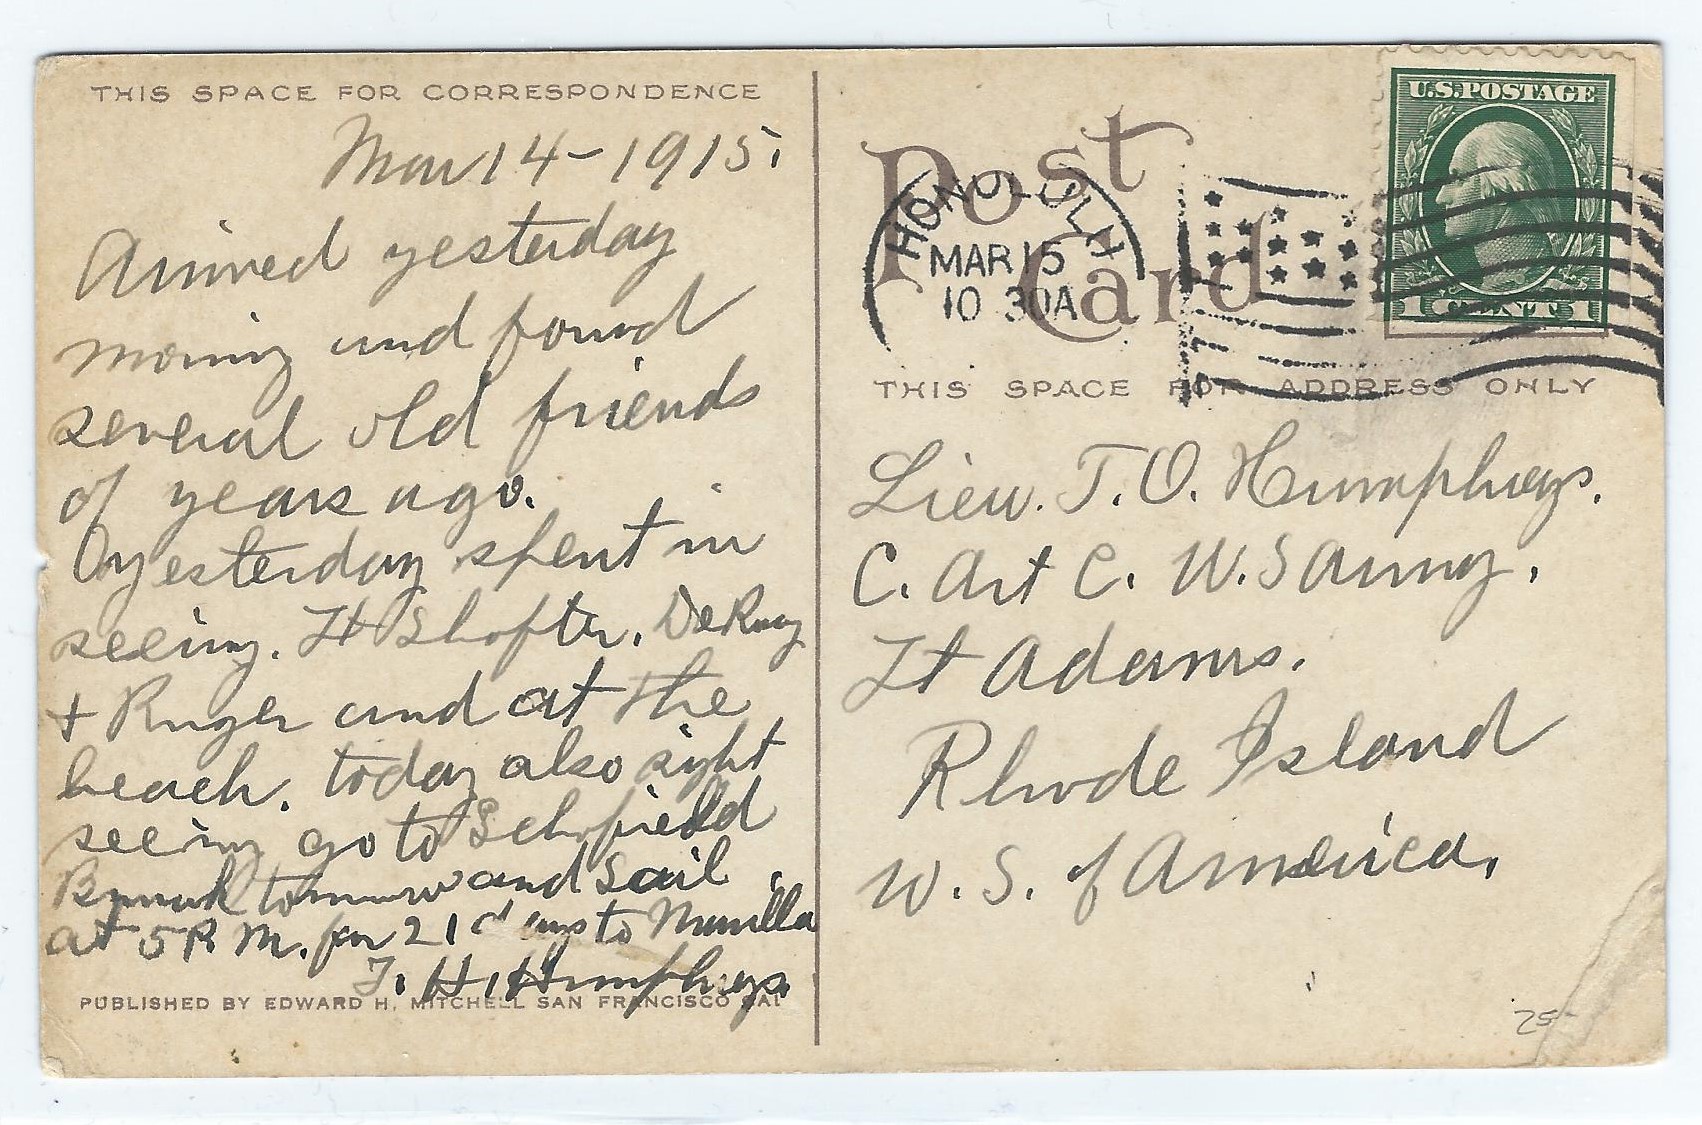 THIS SPACE FOR CORRESPONDENCE
Mar 14 - 1915.
Arrived yesterday
morning and found
several old friends
of years ago.
yesterday spent in
seeing. Ft Shafter. DeRusy
+ Ruger and at the
beach. today also sight
seeing go to Schofield
tomorrow and sail
at 5 P. M. for 21 days to Manilla
F. H. Humphreys.
PUBLISHED BY EDWARD H. MITCHELL SAN FRANCISCO CAL
Post
Card
HONOLULU
MAR 15
10 30A
U.S.POSTAGE
1 CENT 1
THIS SPACE FOR ADDRESS ONLY
Lieu. T. O. Humphreys.
C. Art C. U. S Army.
Ft Adams.
Rhode Island
U. S. of America.
25-